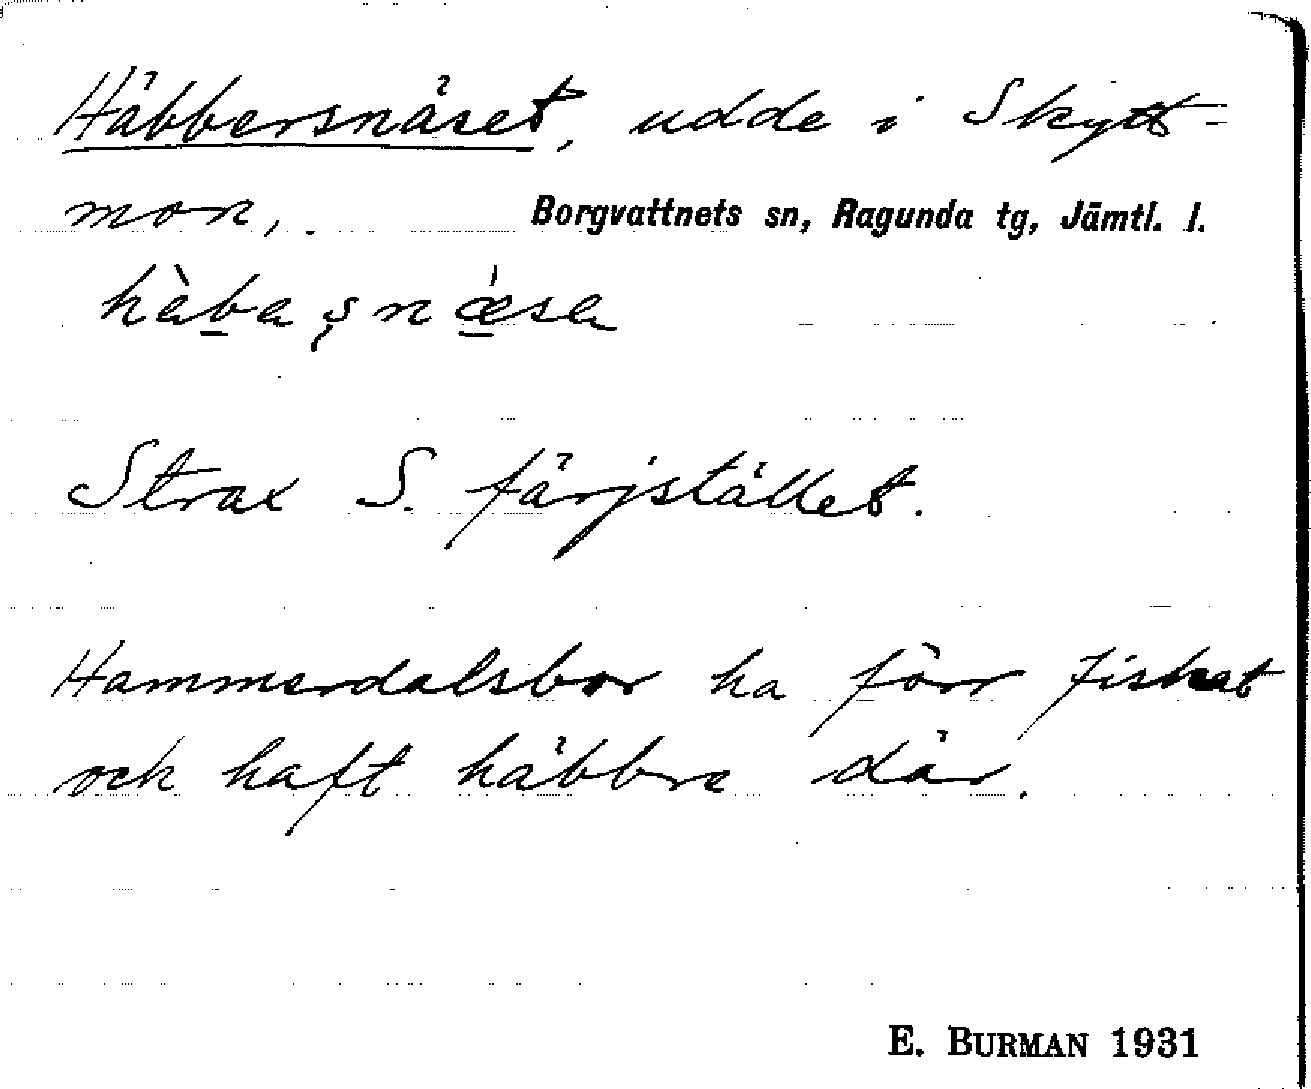 Häbbersnäset, udde i Skytt-
mon, . Borgvattnets sn, Ragunda tg, Jämtl. l.
Strax S. färjstället.
Hammerdalsbor ha förr fiskat
ock haft häbbre där.
E. BURMAN 1931